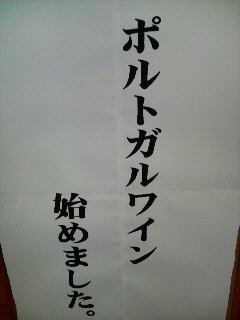 ポルトガルワイン
始めました。